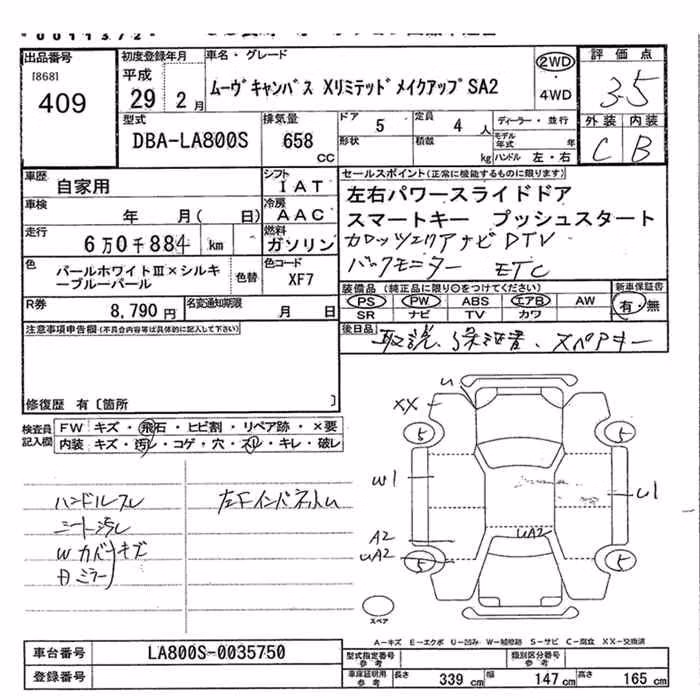 出品番号
[868]
409
初度登録年月
平成
29 2月
車名・グレード
ムーヴキャンバス XリミテッドメイクアップSA2
2WD
・
4WD
評価点
3.5
外装 内装
C B
型式
DBA-LA800S
排気量
658
CC
ドア 5
定員 4 人
形状
積載 kg
ディーラー・並行
モデル年式 年
ハンドル 左・右
車歴
自家用
シフト
IAT
車検
年 月( 日)
冷房
AAC
走行
6万0千884 km
燃料
ガソリン
色
パールホワイトⅢ×シルキーブルーパール
色替
色コード
XF7
R券
8,790円
名変通知期限
月 日
セールスポイント(正常に機能するものに限ります)
左右パワースライドドア
スマートキー プッシュスタート
カロッツェリアナビ DTV
バックモニター ETC
装備品(純正品に限り○をつけてください)
PS PW ABS エアB AW
SR ナビ TV カワ
新車保証書
有・無
後日品
取説、保証書、スペアキー
注意事項申告欄(不具合内容等は具体的に記入して下さい)
修復歴 有〔箇所 〕
検査員
記入欄
FW キズ・飛石・ヒビ割・リペア跡・×要
内装 キズ・汚レ・コゲ・穴・スレ・キレ・破レ
ハンドルスレ
シート汚レ
Wカバーキズ
内ミラー
U
XX
5
5
W1
U1
A2
UA2
UA2
5
5
スペア
A-キズ E-エクボ U-凹み W-補修跡 S-サビ C-腐食 XX-交換済
車台番号
LA800S-0035750
登録番号
型式指定番号
参考
類別区分番号
参考
車庫証明用
参考
長さ 339 cm
幅 147 cm
高さ 165 cm